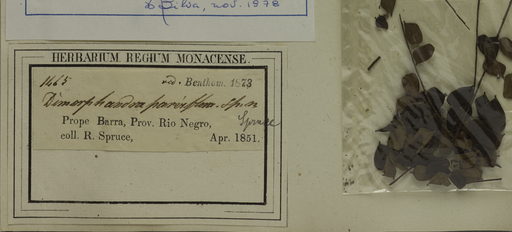 da Silva, nov. 1978
HERBARIUM REGIUM MONACENSE.
1465 ed. Benthom. 1873
Dimorphandra parviflora. sp. n
Spruce
Prope Barra, Prov. Rio Negro,
coll. R. Spruce, Apr. 1851.